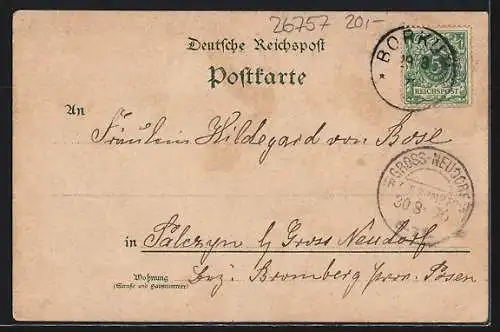 26757 20,-
Deutsche Reichspost
Postkarte
BORKUM
5
REICHSPOST
An
Fräulein Hildegard von Bose
GROSS-NEUDORF
30 8
in Salczyn b/ Gross Neudorf
Wohnung
(Straße und Hausnummer)
Bez. Bromberg prov. Posen